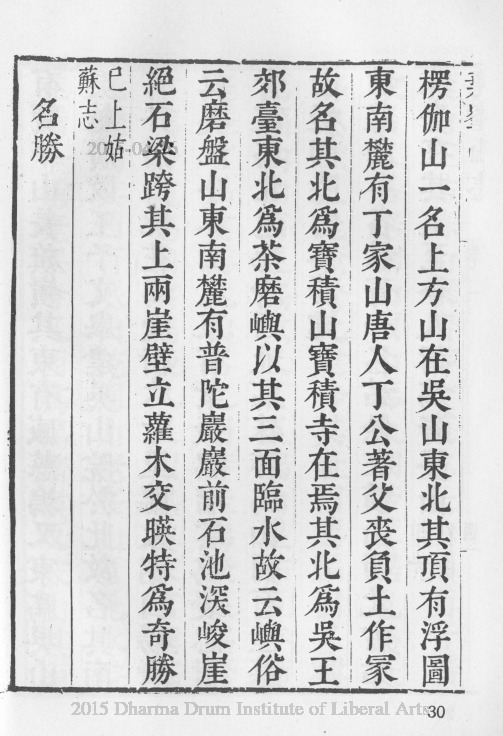 楞伽山一名上方山在吳山東北其頂有浮圖
東南麓有丁家山唐人丁公著父喪負土作冢
故名其北爲寶積山寶積寺在焉其北爲吳王
郊臺東北爲茶磨嶼以其三面臨水故云嶼俗
云磨盤山東南麓有普陀巖巖前石池深峻崖
絕石梁跨其上兩崖壁立蘿木交暎特爲奇勝
已上姑
蘇志
名勝
2015 Dharma Drum Institute of Liberal Arts
30